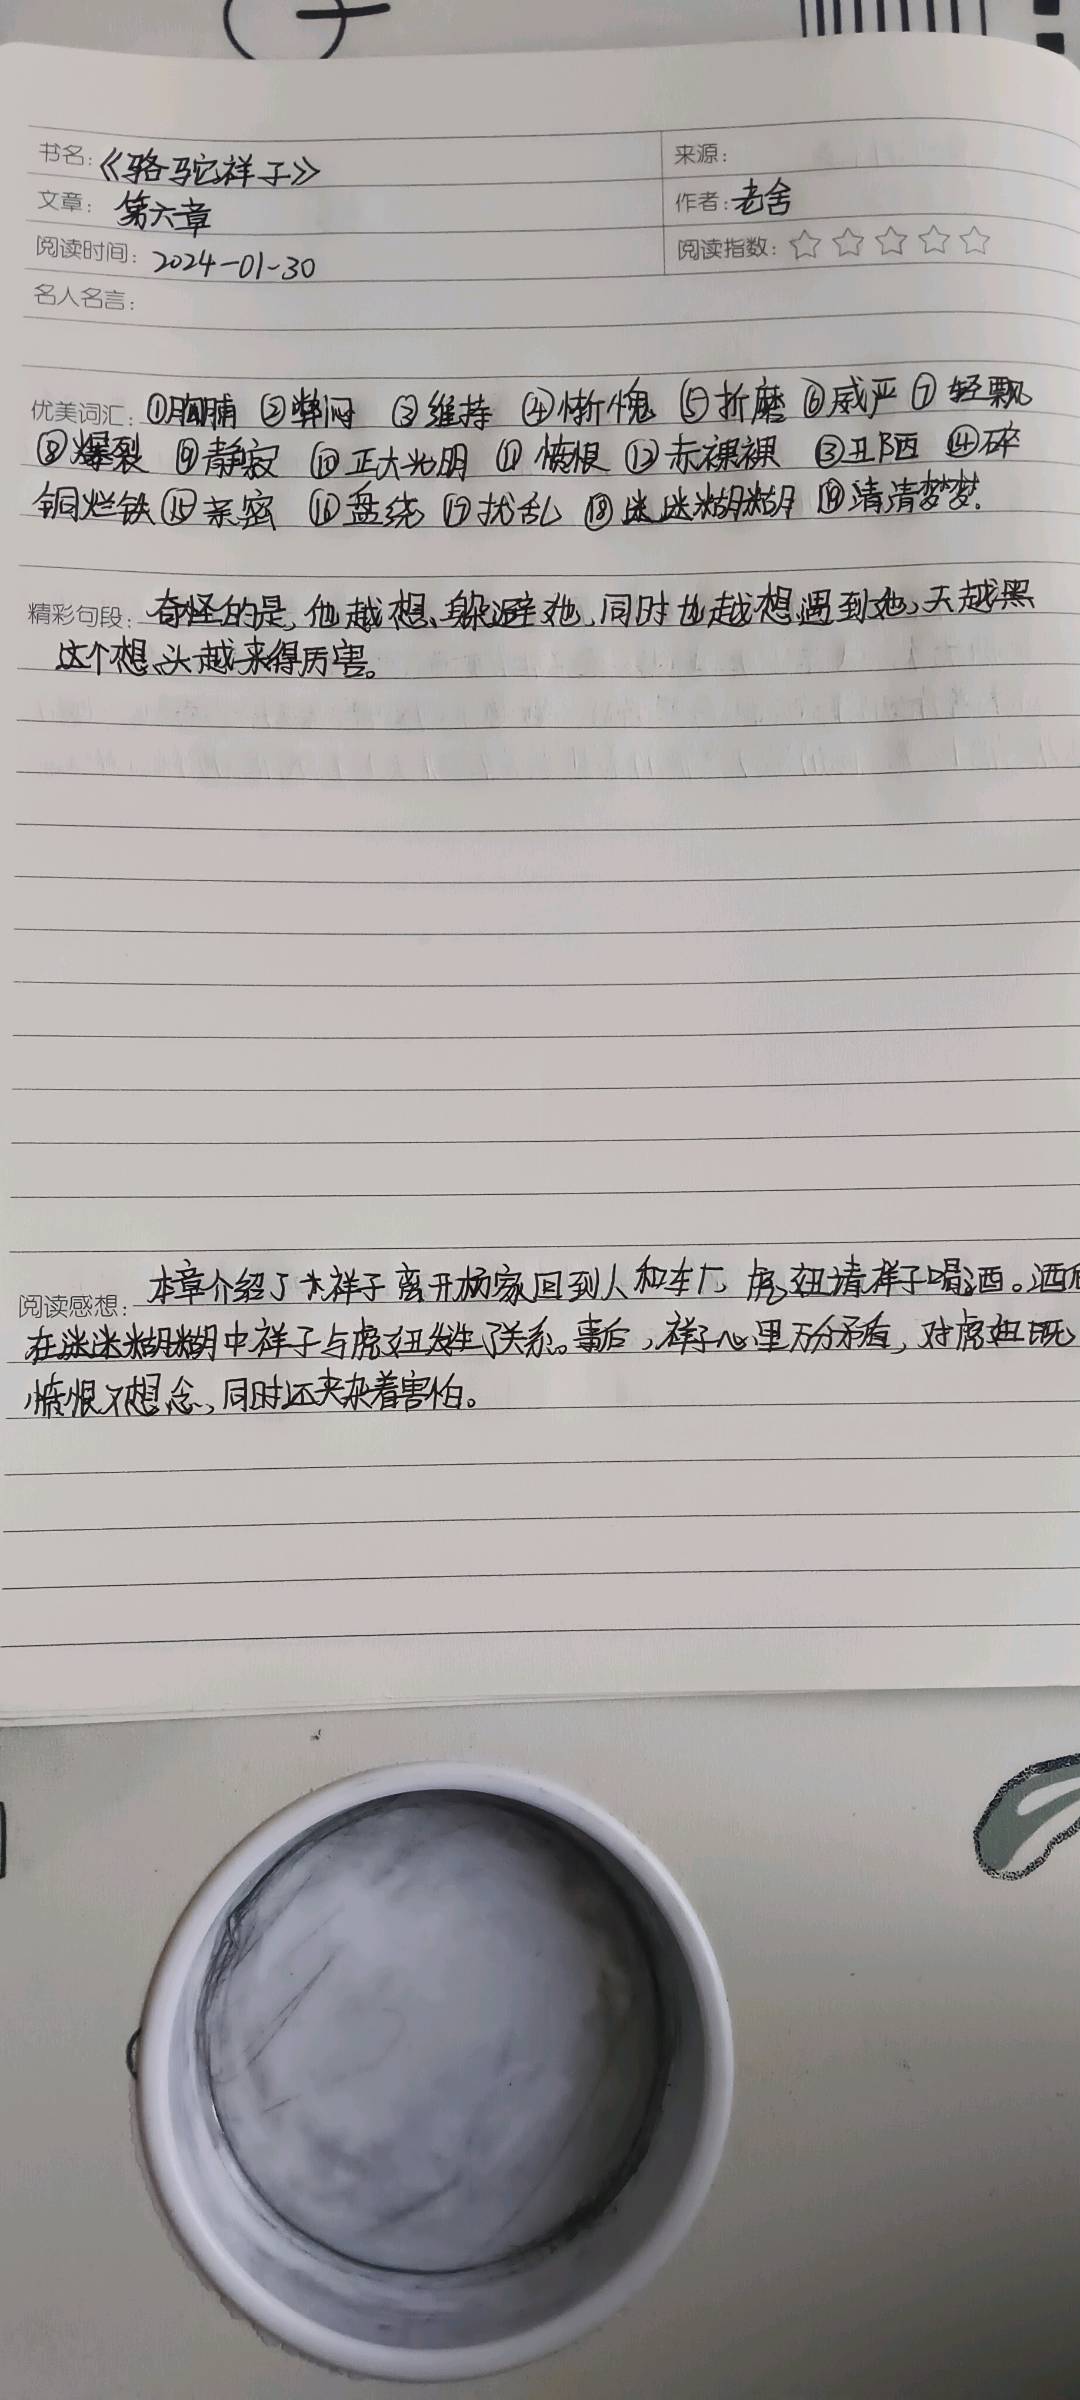 书名：《骆驼祥子》 来源：
文章：第六章 作者：老舍
阅读时间：2024-01-30 阅读指数：
名人名言：
优美词汇：①胸脯 ②弊闷 ③维持 ④惭愧 ⑤折磨 ⑥威严 ⑦轻飘
⑧爆裂 ⑨静寂 ⑩正大光明 ⑪愤恨 ⑫赤裸裸 ⑬丑陋 ⑭碎
铜烂铁 ⑮亲密 ⑯盘绕 ⑰扰乱 ⑱迷迷糊糊 ⑲清清梦梦.
精彩句段：奇怪的是，他越想躲避她，同时也越想遇到她，天越黑
这个想头越来得厉害。
阅读感想：本章介绍了祥子离开杨家回到人和车厂，虎妞请祥子喝酒。酒后
在迷迷糊糊中祥子与虎妞发生了关系。事后，祥子心里万分矛盾，对虎妞既
愤恨又想念，同时还夹杂着害怕。